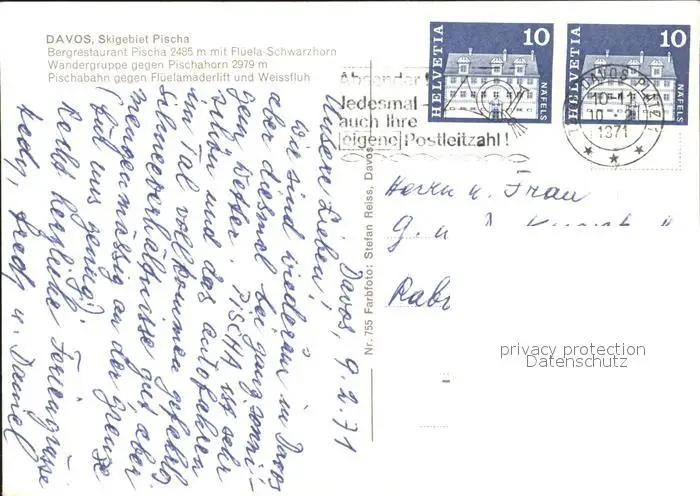 DAVOS, Skigebiet Pischa
Bergrestaurant Pischa 2485 m mit Flüela-Schwarzhorn
Wandergruppe gegen Pischahorn 2979 m
Pischabahn gegen Flüelamaderlift und Weissfluh
Davos, 9.2.71
Unsere Lieben!
Wir sind wiederum in Davos
aber diesmal bei ganz sonni-
gem Wetter. PISCHA ist sehr
schön und das autofahren
im Tal vollkommen gefahrlos
Schneeverhältnisse gut aber
mengenmässig an der Grenze
(für uns genug)
Recht herzliche Feriengrüsse
Hedy, Fredy u. Daniel
Nr. 755 Farbfoto: Stefan Reiss, Davos
HELVETIA 10 NÄFELS
HELVETIA 10 NÄFELS
Absender
Jedesmal
auch Ihre
eigene Postleitzahl!
DAVOS PLATZ 1
10-11
10.-2.
1971
Herrn u. Frau
G. u.
privacy protection
Datenschutz